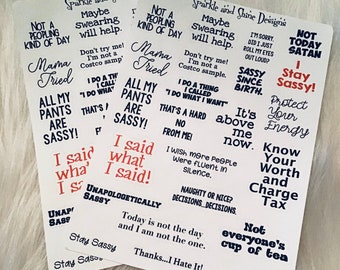 Sparkle and Shine Designs
NOT A
PEOPLING
KIND OF DAY
Maybe
swearing
will help.
Mama
Tried
Don't try me!
I'm not a
Costco sample.
ALL MY
PANTS
ARE
SASSY!
I DO A THING
I CALLED
"I DO WHAT I WANT"
THAT'S A HARD
NO
I said
what
I said!
UNAPOLOGETICALLY
SASSY
Stay Sassy
Sparkle and Shine Designs
NOT A
PEOPLING
KIND OF DAY
Maybe
swearing
will help.
I'M SORRY,
DID I JUST
ROLL MY EYES
OUT LOUD?
NOT
TODAY
SATAN
Mama
Tried
Don't try me!
I'm not a
Costco sample.
SASSY
SINCE
BIRTH.
I
Stay
Sassy!
ALL MY
PANTS
ARE
SASSY!
I DO A THING
I CALLED
"I DO WHAT I WANT"
THAT'S A HARD
NO
FROM ME!
It's
above me
now.
Protect
Your
Energy
I said
what
I said!
I WISH MORE PEOPLE
WERE FLUENT IN
SILENCE.
Know
Your Worth
and
Charge
Tax
UNAPOLOGETICALLY
SASSY
NAUGHTY OR NICE?
DECISIONS..DECISIONS.
Today is not the day
and I am not the one.
Not
everyone's
cup of tea
Stay Sassy
Thanks...I Hate It!